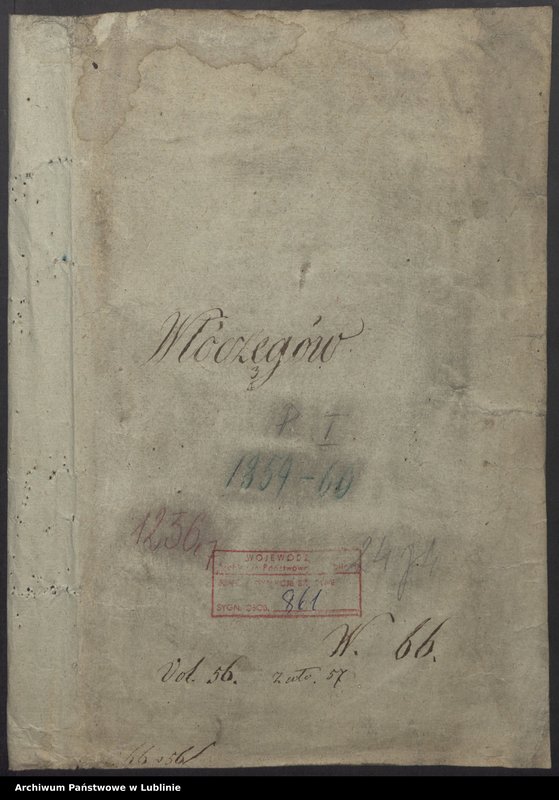 Włóczegów
3
P. I
1859-60
1236
24
WOJEWÓDZ
Archiwum Państwowe
SYGN. OSOB. 861
W. 66.
Vol. 56. 57
Archiwum Państwowe w Lublinie